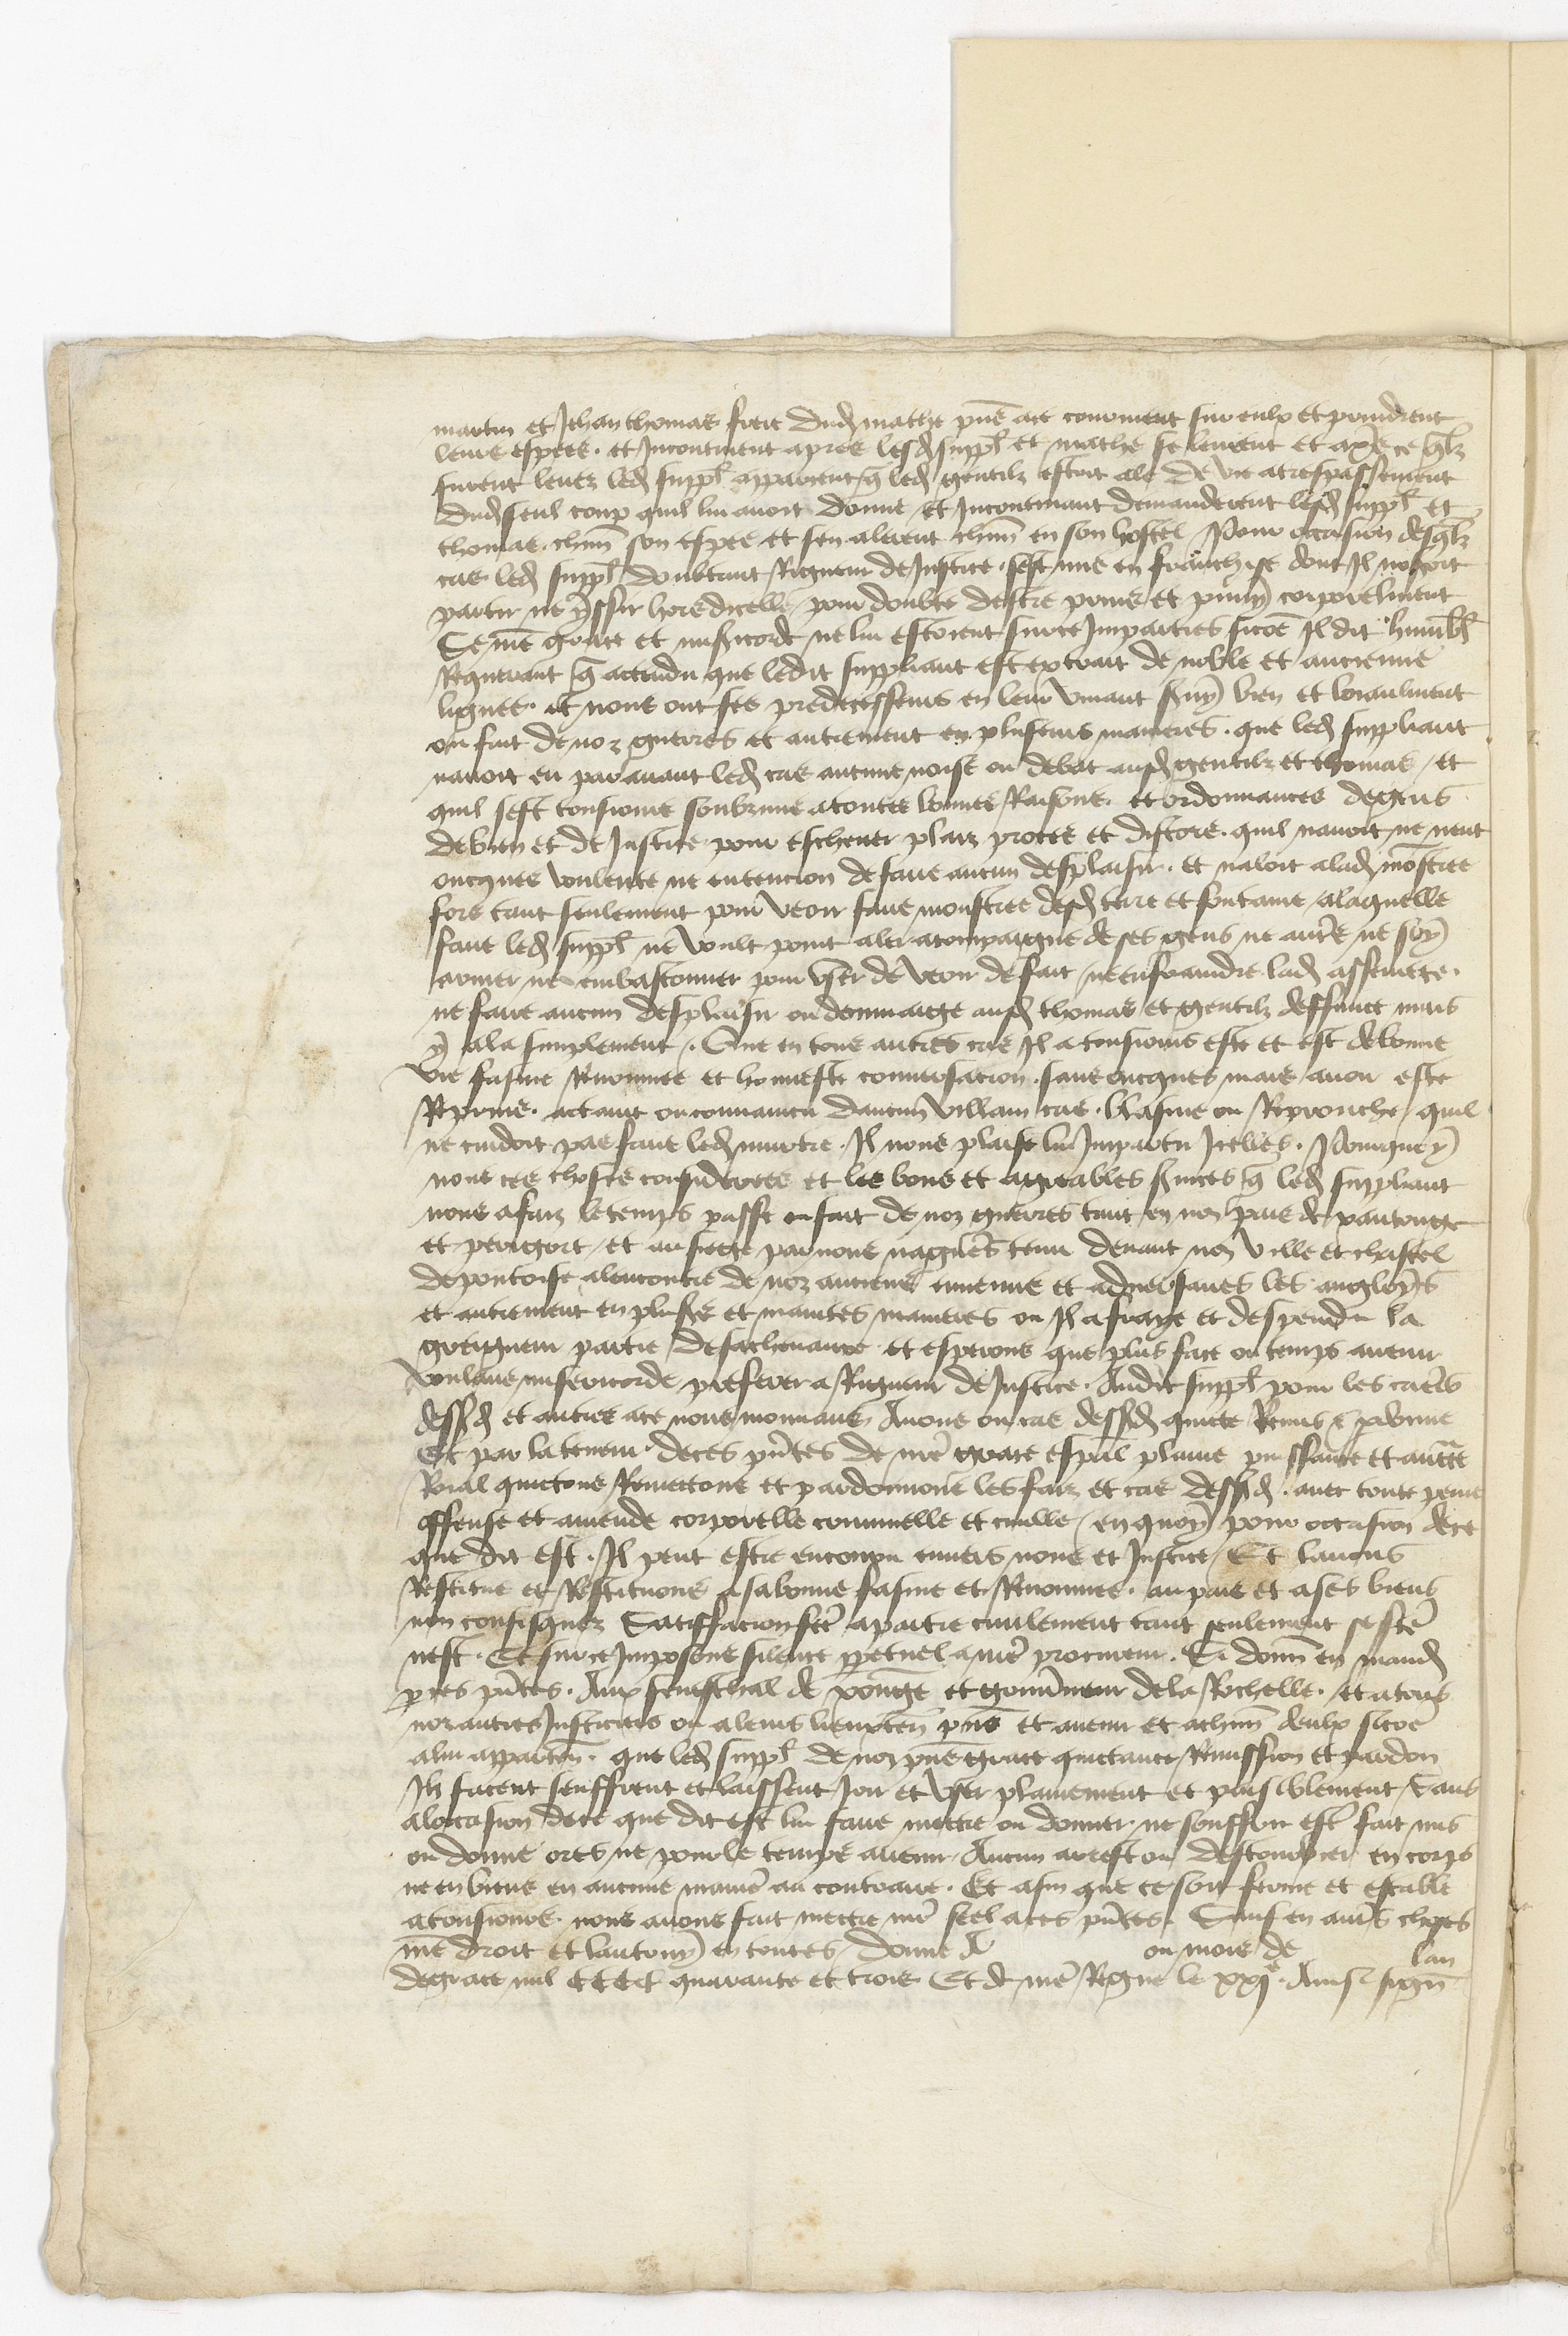 martin et Jehan thomas frere dud mathe pnt ace coururent sur eulx et prindrent
leurs espees . et Incontinent apres lesd suppl et mathe se leverent et apres ce qlz
furent levez led suppl apparceut q led gentilz estoit ale de vie a trespassement
dud seul coup quil lui avoit donne et Incontinant demanderent lesd suppl et
thomas chun son espee et sen alerent chun en son hostel Pour occasion desqlz
cas led suppl doubtant Rigueur de Justice . sest mis en franchise dont Il noseroit
partir ne yssir hors dicelle pour doubte destre prins et puny corporelment
Se nre grace et misericorde ne lui estoient sur ce Imparties sicoe Il dit humbl
Requerant q actendu que ledit suppliant est extrait de noble et ancienne
lignee . et nous ont ses predecesseurs en leur vivant servy bien et loiaulment
ou fait de noz guerres et autrement en plusieurs manieres . que led suppliant
navoit eu par avant led cas aucune noise ou debat ausd gentilz et thomas et
quil sest tousiours soubzmis a toutes bonnes Raisons . et ordonnances de gens
de bien et de Justice pour eschever plaiz proces et discors . quil navoit ne neut
oncques voulente ne entencion de faire aucun desplaisir . et naloit a lad monstree
fors tant seulement pour veoir faire monstree desd terre et fontaine a laquelle
faire led suppl ne voult point aler acompaigne de ses gens ne autre ne soy
armer ne embastonner pour user de veoir de fait ne enfraindre lad asseurete .
ne faire aucun desplaisir ou dommaige ausd thomas et gentilz deffunct mais
y ala simplement . Que en tous autres cas Il a tousiours este et est de bonne
vie fasme Renommee et honneste conversacion . sans oncques mais avoir este
Reprins . actaint ou convaincu daucun villain cas . blasme ou Reprouche quil
ne cuidoit pas faire led murtre . Il nous plaise lui Impartir Icelles . Pourquoy
nous ces choses considerees et les bons et agreables services q led suppliant
nous a faiz le temps passe ou fait de noz guerres tant en noz pais de xantonge
et perigort et au siege par nous nagueres tenu devant noz ville et chastel
de pontoise alencontre de noz anciens ennemis et adversaires les anglois
et autrement en plusrs et maintes manieres ou Il a fraye et despendu la
greigneur partie de sa chevance et esperons que plus face ou temps avenir
voulans misericorde preferer a Rigueur de Justice . Audit suppl pour les causes
dessusd et autres ace nous mouvans Avons ou cas dessusd quicte Remis & pardonne
Et par la teneur de ces pntes de nre grace espal plaine puissance et aucte
Roial quictons Remettons et pardonnons les faiz et cas dessusd . avec toute peine
offense et amende corporelle criminelle et civille en quoy pour occasion dece
que dit est . Il peut estre encouru envers nous et Justice Et lavons
Restitue et Restituons a sa bonne fasme et Renommee . au pais et a ses biens
non confisquez Satisffacion fcte a partie civilement tant seulement se fcte
nest . Et sur ce Imposons silence ppetuel a nre procureur . Si donn en mand
p ces pntes . Aux seneschal de xontge et gouverneur de la Rochelle . et a tous
noz autres Justiciers ou a leurs lieuxten pns et avenir et a chun deulx sicoe
alui apparten . que led suppl de noz pns grace quictance Remission et pardon
Ilz facent seuffrent et laissent Joir et user plainement et paisiblement Sans
a loccasion de ce que dit est lui faire mettre ou donner ne souffrir estre fait mis
ou donne ores ne pour le temps avenir Aucun arrest ou destourbier en corps
ne en biens en aucune maniere au contraire . Et afin que ce soit ferme et estable
a tousiours nous avons fait mettre nre seel a ces pntes . Sauf en autrs choses
nre droit et lautruy en toutes Donne A ou mois de lan
de grace mil CCCC quarante et trois Et de nre Regne le xxje . Ainsi sign